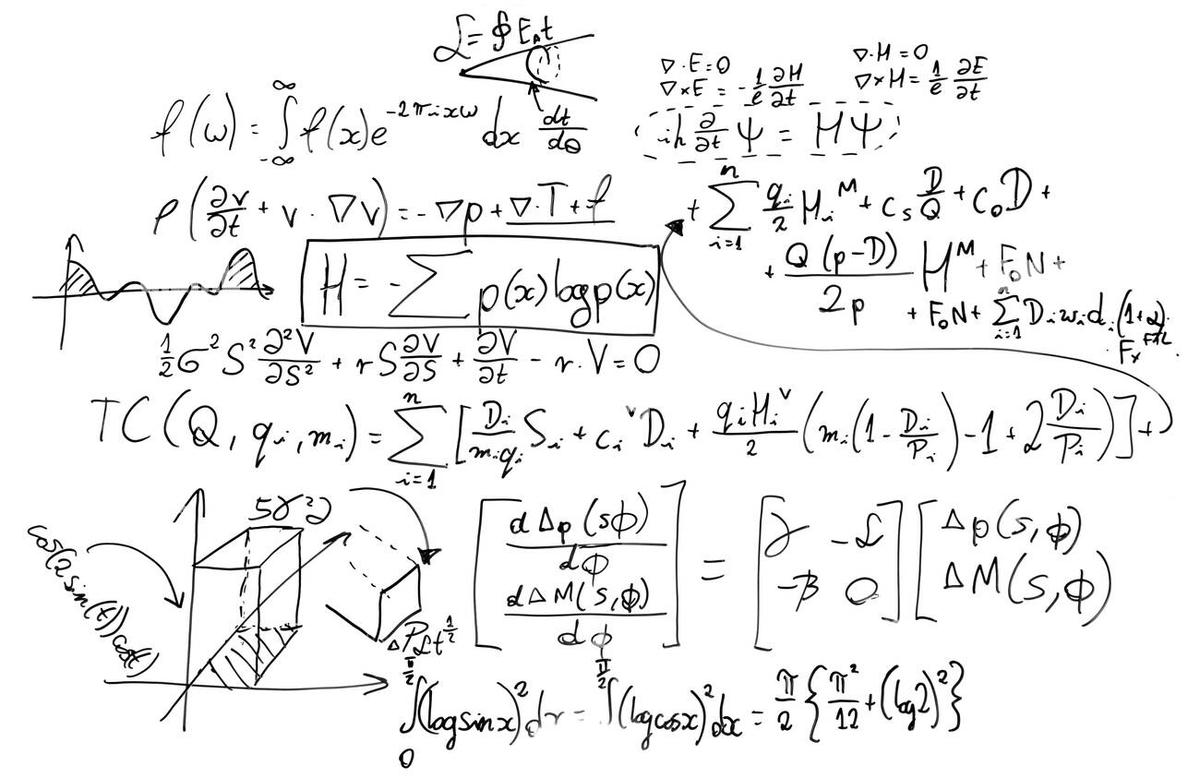 ℒ = ∮ E₁t
∇·E=0 ∇·H=0
∇×E = -1/e ∂H/∂t ∇×H = 1/e ∂E/∂t
f(ω) = ∫_{-∞}^{∞} f(x)e^{-2πixω} dx dt/dθ
iħ ∂/∂t Ψ = HΨ
ρ(∂v/∂t + v·∇v) = -∇p + ∇·T + f
+ ∑_{i=1}^{n} q_i/2 H_i^M + c_s D/Q + c_o D +
+ Q(p-D)/2p H^M + F_oN +
+ F_oN + ∑_{i=1}^{n} D_i w_i d_i (1+α)
H = -∑ p(x) log p(x)
1/2 σ² S² ∂²V/∂S² + r S ∂V/∂S + ∂V/∂t - r·V = 0
TC(Q, q_i, m_i) = ∑_{i=1}^{n} [D_i/(m_i q_i) S_i + c_i^v D_i + q_i H_i^v/2 (m_i(1 - D_i/P_i) - 1 + 2 D_i/P_i)] +
cos(2sin(x)) cos(t)
[dΔp(sϕ)/dϕ
dΔM(s,ϕ)/dϕ] = [γ -ℒ
-β 0] [Δp(s,ϕ)
ΔM(s,ϕ)
ΔPℒt^{1/2}
∫_0^{π/2} (log sin x)² dx = ∫^{π/2} (log cos x)² dx = π/2 {π²/12 + (log 2)²}